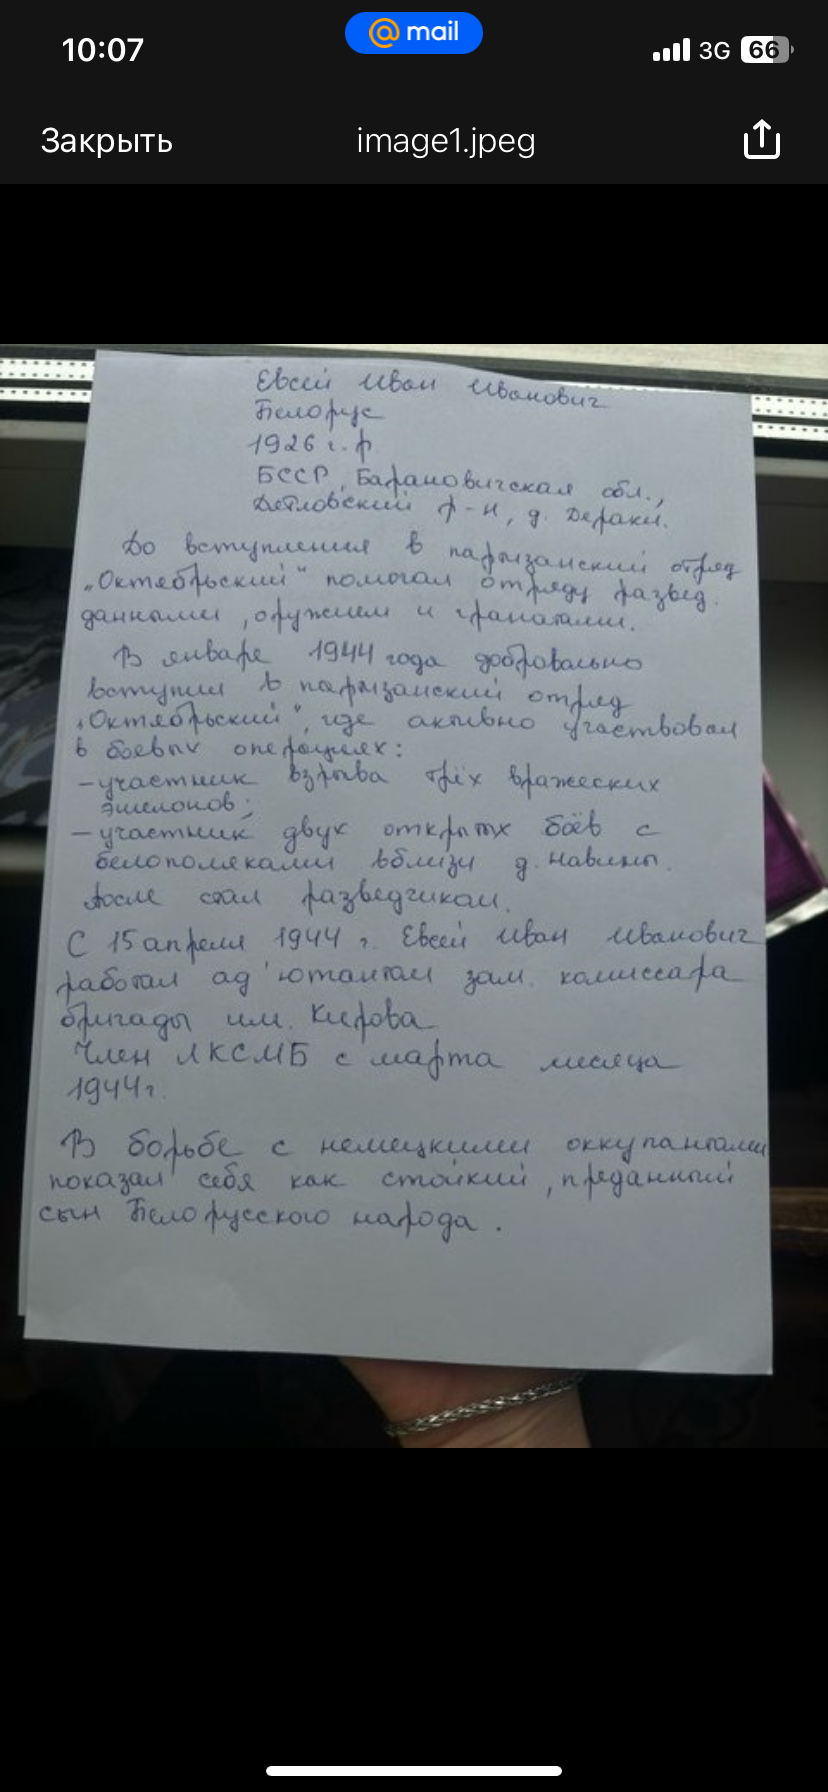 10:07
mail
3G 66
Закрыть
image1.jpeg
Евсей Иван Иванович
Белорус
1926 г.р
БССР, Барановичская обл.,
Дятловский р-н, д. Дераки.
До вступления в парызанский отряд
„Октябрьский" помогал отряду развед.
данными, оружием и гранатами.
В январе 1944 года добровально
вступил в парызанский отряд
„Октябрьский", где активно участвовал
в боевых операциях:
– участник взрыва трёх вражеских
эшелонов;
– участник двух открытых боёв с
белополяками вблизи д. Навины.
После стал разведчиком.
С 15 апреля 1944 г. Евсей Иван Иванович
работал ад'ютантом зам. комиссара
бригады им. Кирова
Член ЛКСМБ с марта месяца
1944г.
В борьбе с немецкими оккупантами
показал себя как стойкий, преданный
сын Белорусского народа.